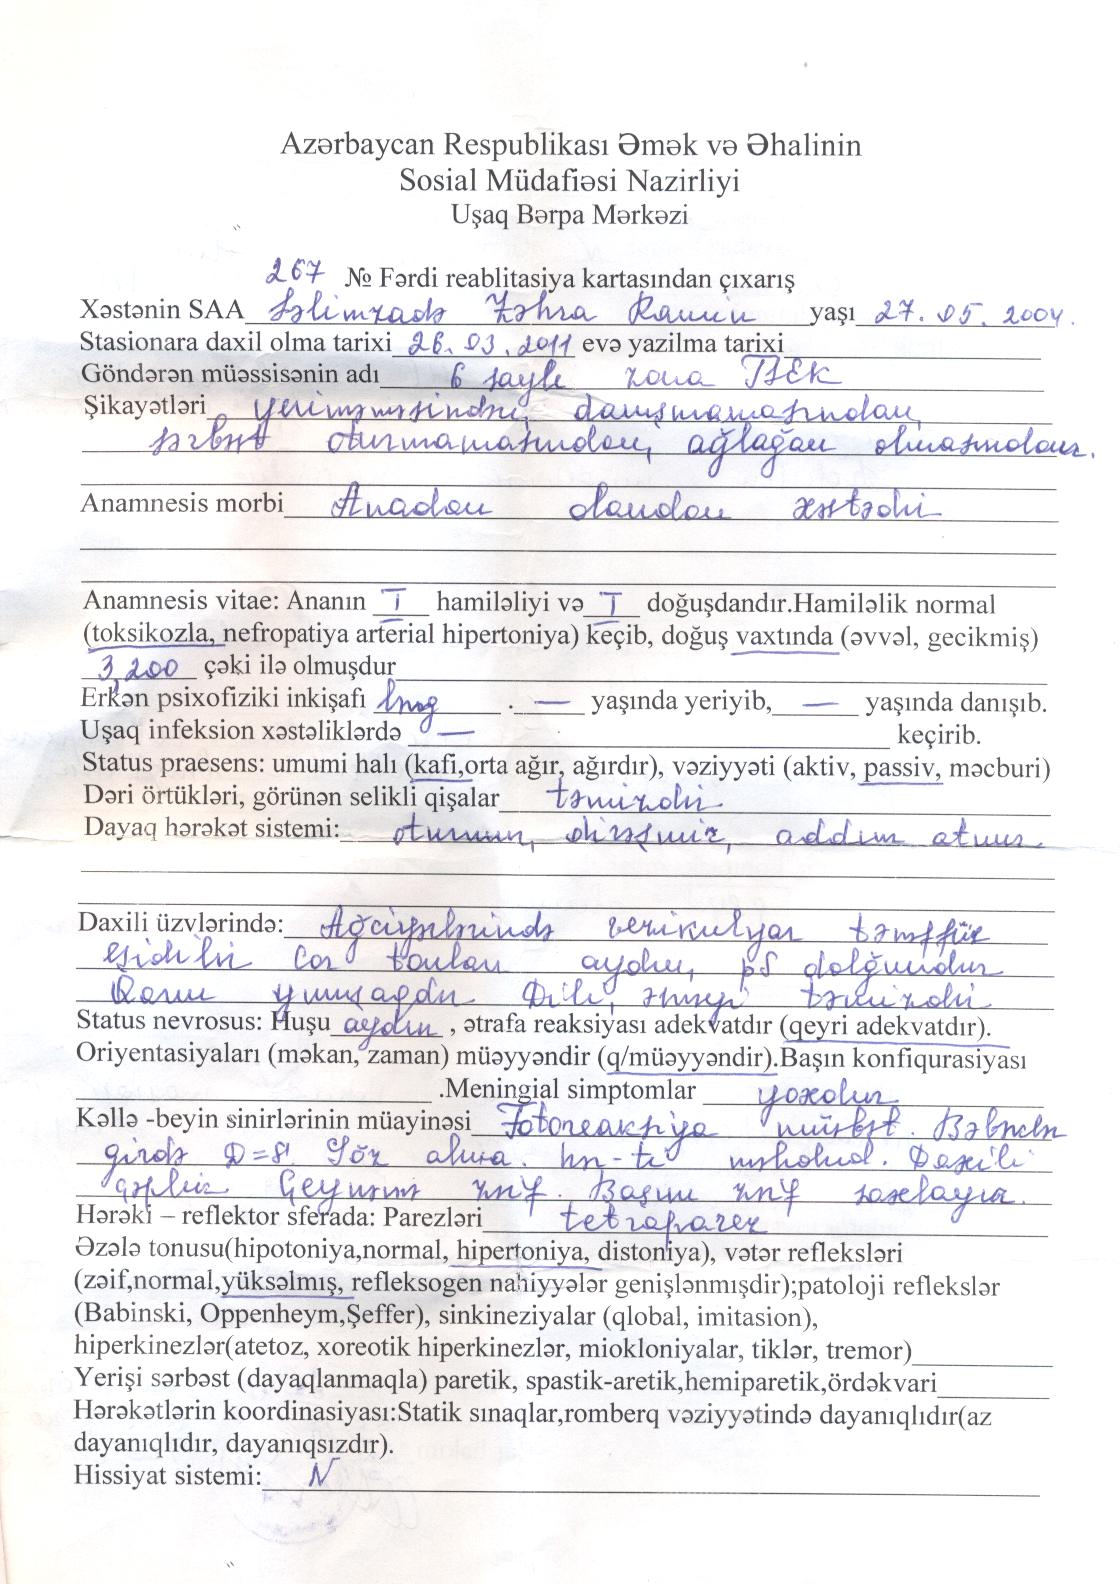 Azərbaycan Respublikası Əmək və Əhalinin
Sosial Müdafiəsi Nazirliyi
Uşaq Bərpa Mərkəzi
267 № Fərdi reablitasiya kartasından çıxarış
Xəstənin SAA Səlimzadə Zəhra Ramin yaşı 27.05.2004.
Stasionara daxil olma tarixi 26.03.2011 evə yazilma tarixi
Göndərən müəssisənin adı 6 saylı zona TSEK
Şikayətləri yeriməməsindən, danışmamasından,
sərbəst oturmamasından, ağlağan olmasından.
Anamnesis morbi Anadan olandan xəstədir
Anamnesis vitae: Ananın I hamiləliyi və I doğuşdandır.Hamiləlik normal
(toksikozla, nefropatiya arterial hipertoniya) keçib, doğuş vaxtında (əvvəl, gecikmiş)
3,200 çəki ilə olmuşdur
Erkən psixofiziki inkişafı . — yaşında yeriyib, — yaşında danışıb.
Uşaq infeksion xəstəliklərdə — keçirib.
Status praesens: umumi halı (kafi,orta ağır, ağırdır), vəziyyəti (aktiv, passiv, məcburi)
Dəri örtükləri, görünən selikli qişalar təmizdir
Dayaq hərəkət sistemi: oturmur, dirəşmir, addım atmır.
Daxili üzvlərində: Ağciyərlərində vezikulyar tənəffüs
eşidilir Cor tonları aydın, ps dolğundur
Qarnı yumşaqdır Dili, əsnəyi təmizdir
Status nevrosus: Huşu aydın , ətrafa reaksiyası adekvatdır (qeyri adekvatdır).
Oriyentasiyaları (məkan, zaman) müəyyəndir (q/müəyyəndir).Başın konfiqurasiyası
.Meningial simptomlar yoxdur
Kəllə -beyin sinirlərinin müayinəsi Fotoreaksiya müsbət. Bəbəklər
girdə D=S. Göz alma. hr-ti məhdud. Daxili
çəplik Çeynəmə zəif. Başını zəif saxlayır.
Hərəki – reflektor sferada: Parezləri tetraparez
Əzələ tonusu(hipotoniya,normal, hipertoniya, distoniya), vətər refleksləri
(zəif,normal,yüksəlmış, refleksogen nahiyyələr genişlənmışdir);patoloji reflekslər
(Babinski, Oppenheym,Şeffer), sinkineziyalar (qlobal, imitasion),
hiperkinezlər(atetoz, xoreotik hiperkinezlər, miokloniyalar, tiklər, tremor)
Yerişi sərbəst (dayaqlanmaqla) paretik, spastik-aretik,hemiparetik,ördəkvari
Hərəkətlərin koordinasiyası:Statik sınaqlar,romberq vəziyyətində dayanıqlıdır(az
dayanıqlıdır, dayanıqsızdır).
Hissiyat sistemi: N